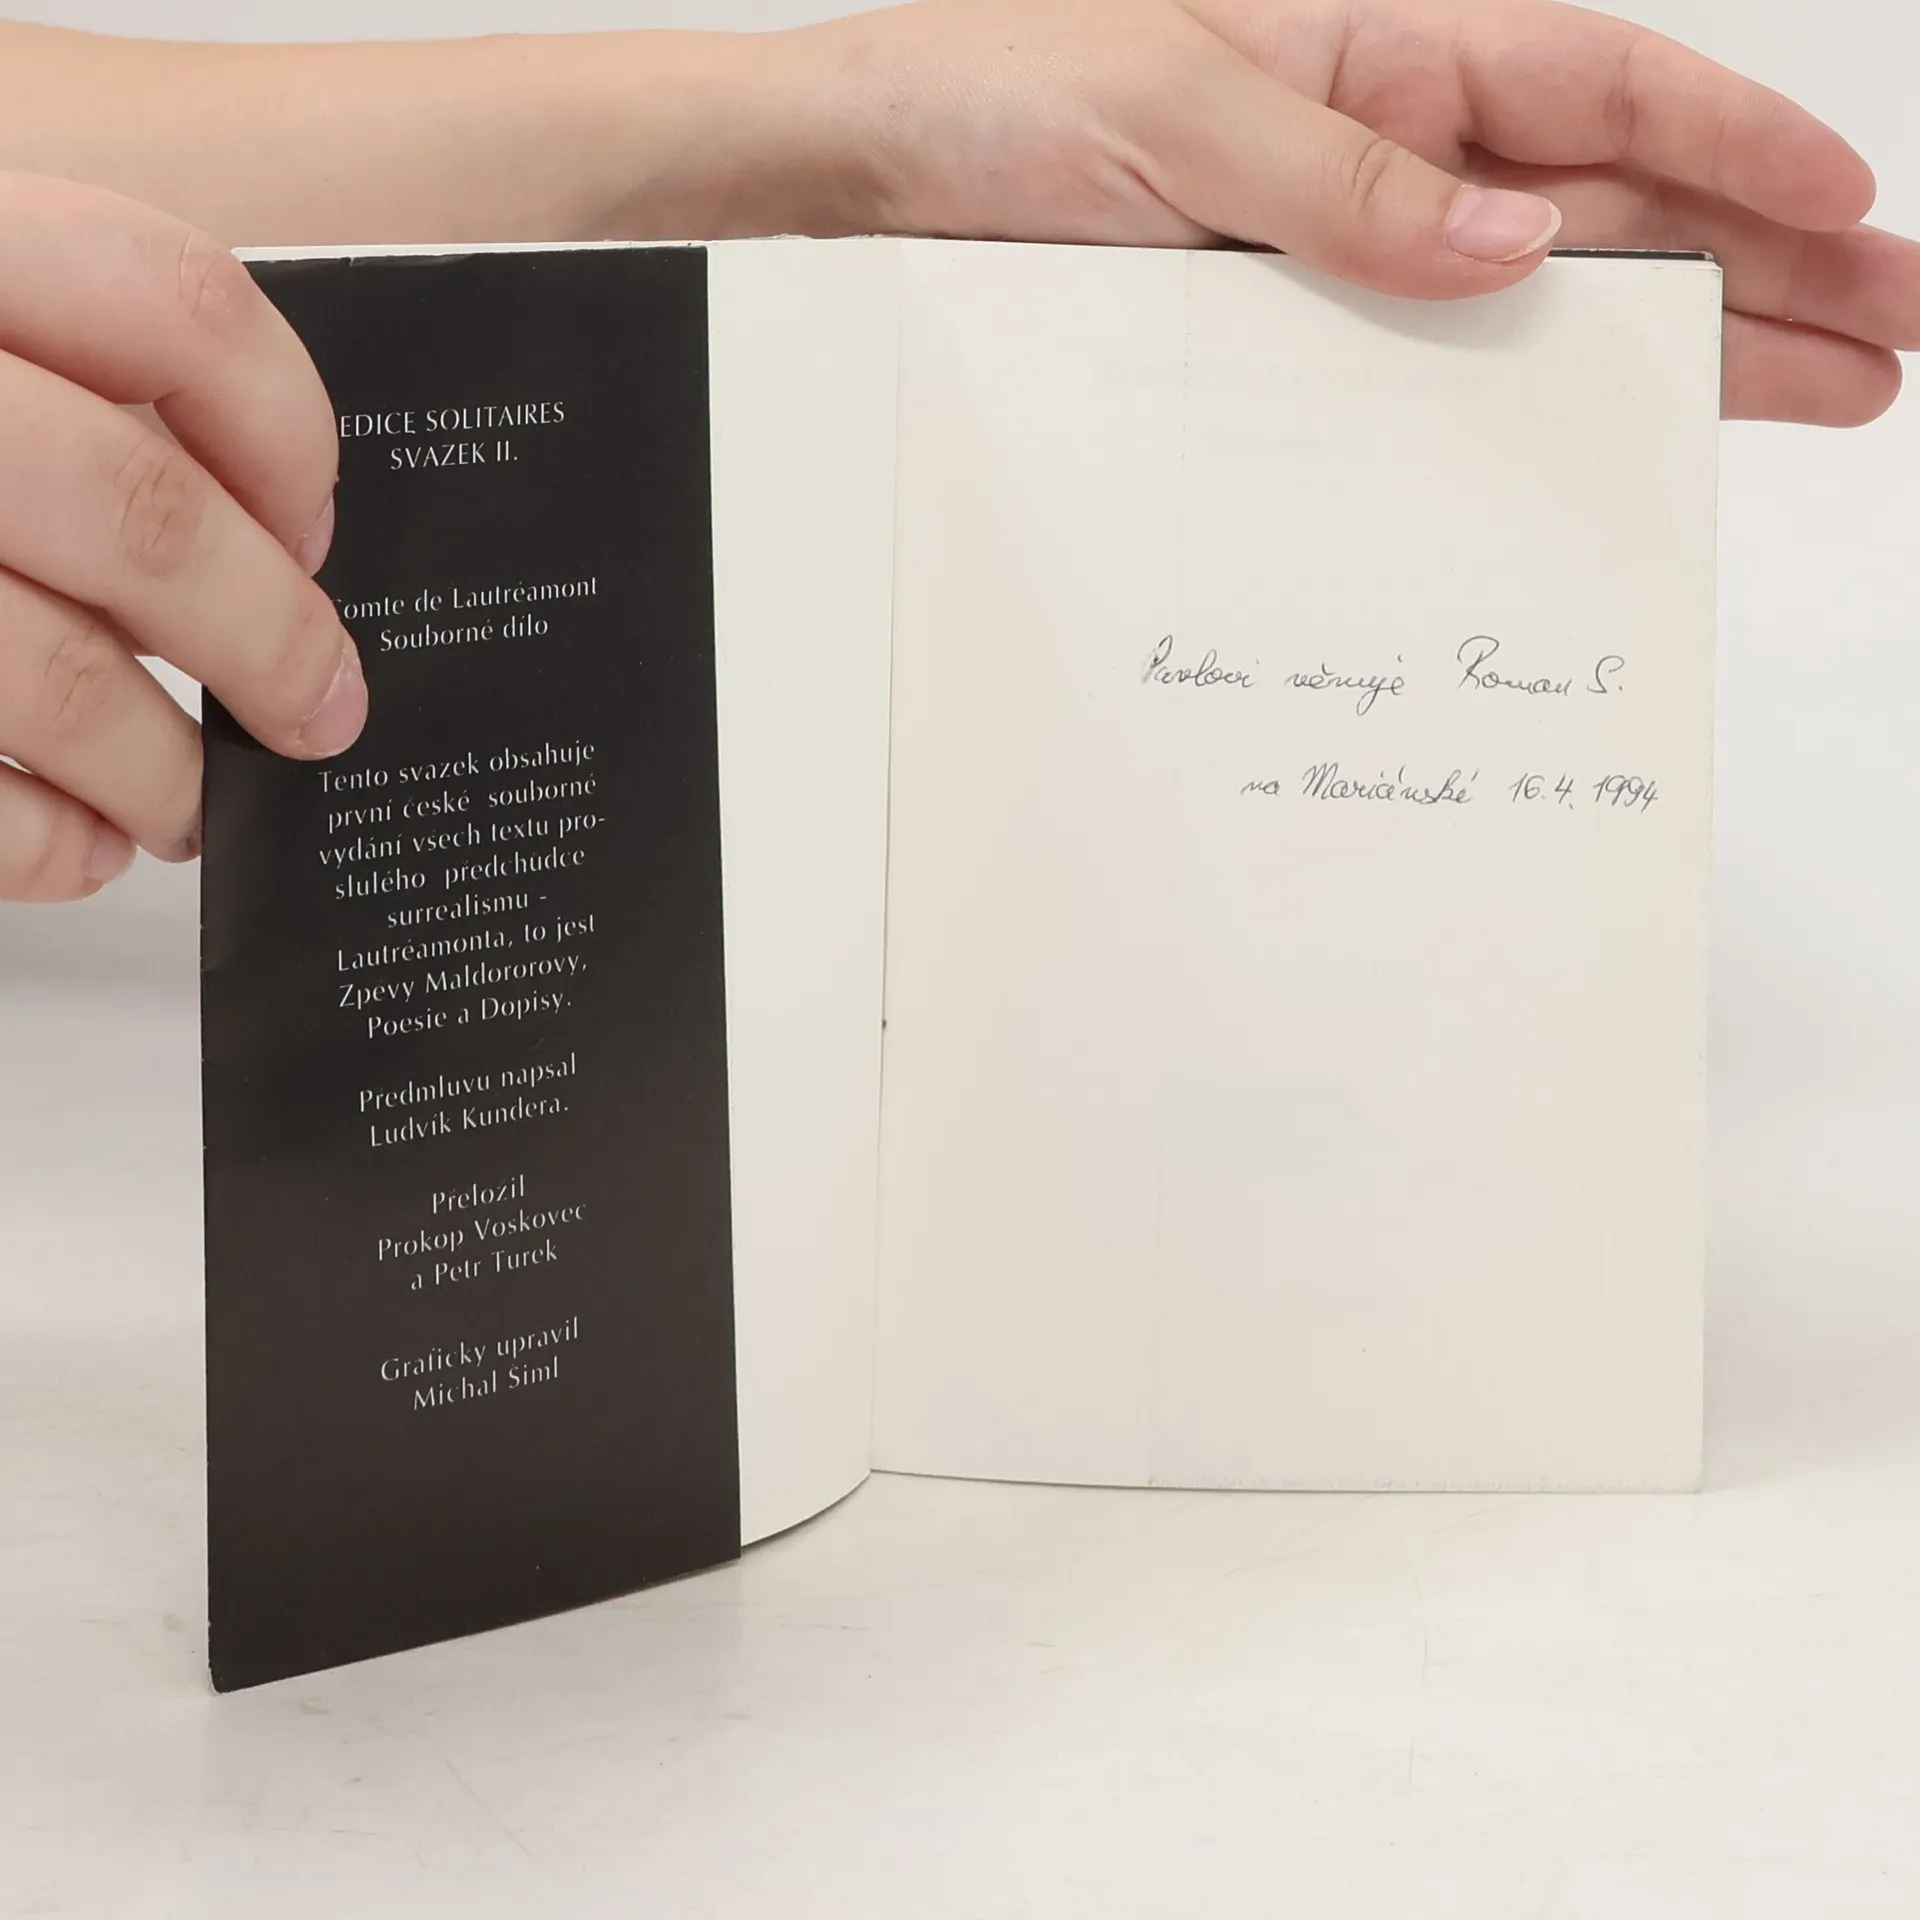 EDICE SOLITAIRES
SVAZEK II.
Comte de Lautréamont
Souborné dílo
Tento svazek obsahuje
první české souborné
vydání všech textu pro-
slulého předchůdce
surrealismu -
Lautréamonta, to jest
Zpěvy Maldororovy,
Poesie a Dopisy.
Předmluvu napsal
Ludvík Kundera.
Přeložil
Prokop Voskovec
a Petr Turek
Graficky upravil
Michal Šiml
Pavlovi věnuje Roman S.
na Mariánské 16.4.1994